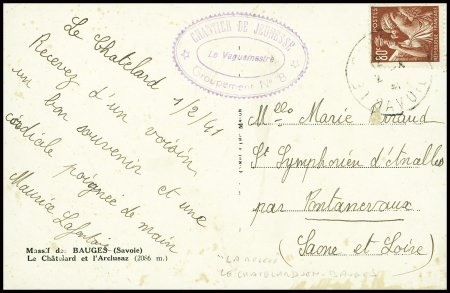 Le Chatelard
1/2/41
Recevez d'un voisin
un bon souvenir et une
cordiale poignée de main
Maurice
Massif des BAUGES (Savoie)
Le Châtelard et l'Arclusaz (2086 m.)
CHANTIER DE JEUNESSE
Le Vaguemestre
Groupement No 8
POSTES
80c
SAVOIE
Mlle Marie
St Symphorien d'Ancelles
par Pontanevaux
(Saone et Loire)
LE CHATELARD-EN-BAUGES